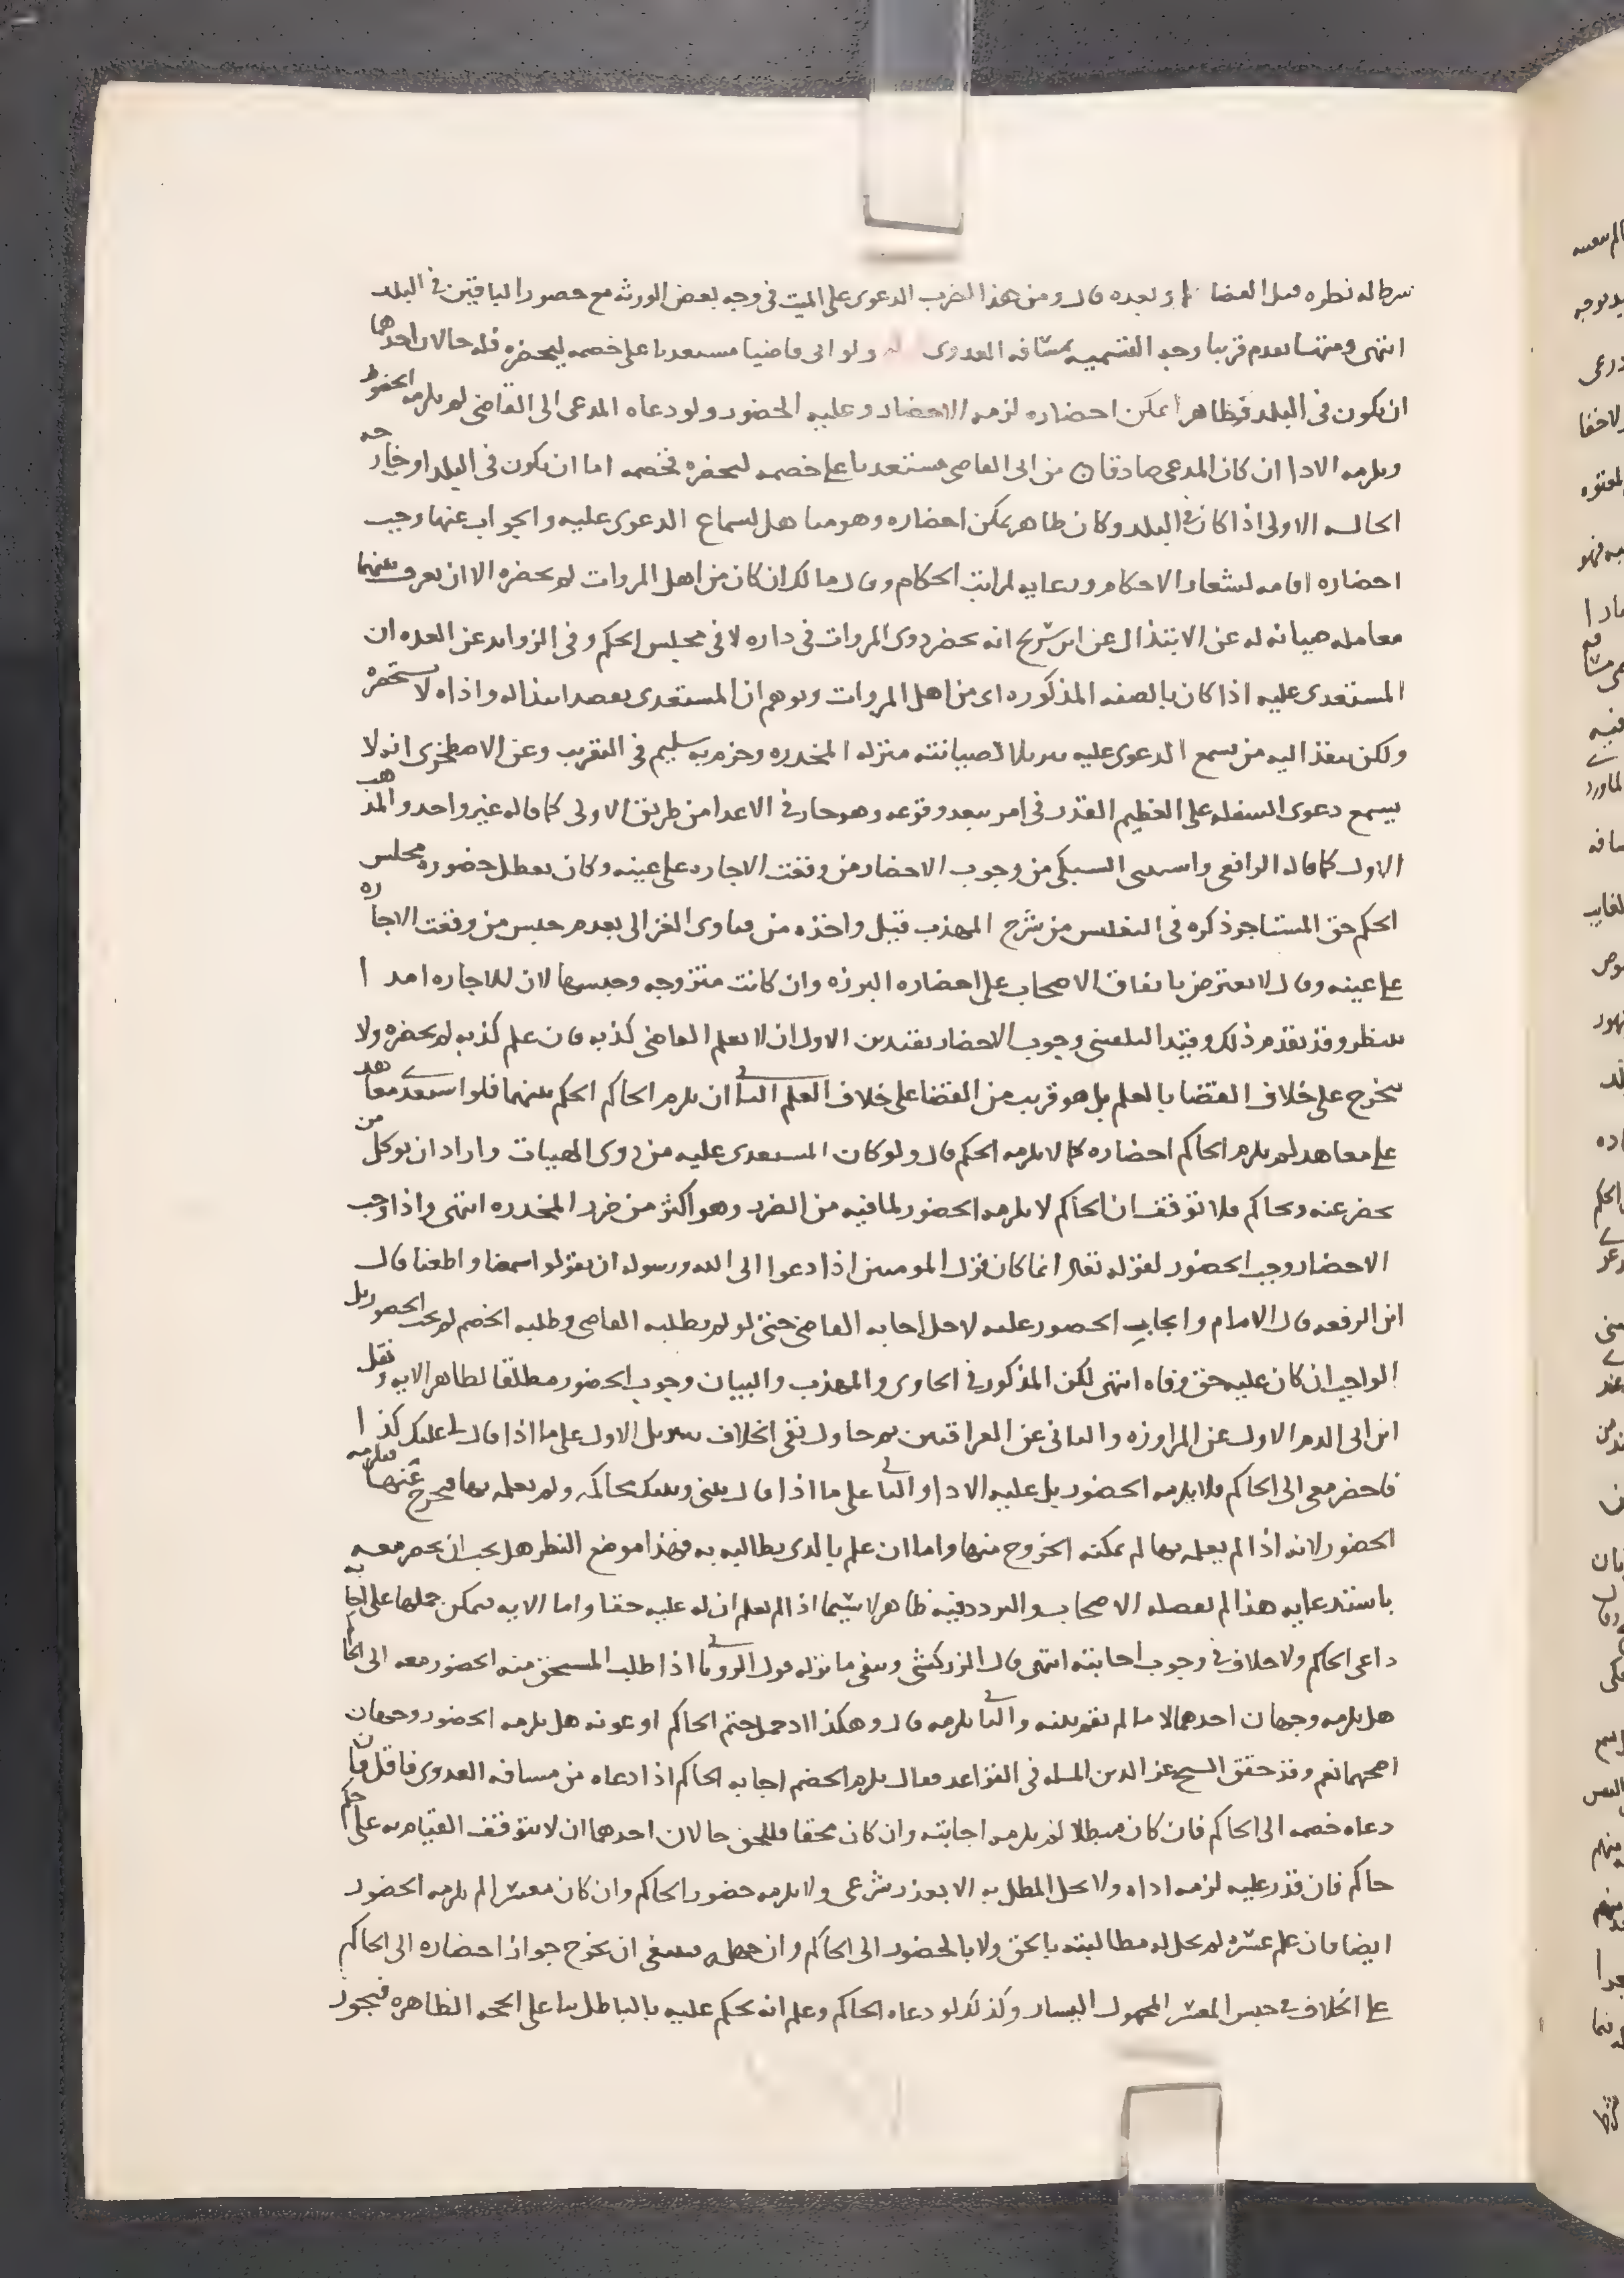 نظره قبل القضا او بعده قال ومن هذا الضرب الدعوى على الميت في وجه بعض الورثه مع حضور الباقين في البلد
انتهى ومنها تقدم قريبا وجه التسميه بمسافه العدوى ولو اتى قاضيا مستعديا على خصمه ليحضره فله حالان احدهما
ان يكون في البلد فظاهر يمكن احضاره لزمه الاحضار وعليه الحضور ولو دعاه المدعى الى القاضي لم يلزمه الحضور
ويلزمه الادا ان كان المدعى صادقا من اتى القاضي مستعديا على خصمه ليحضره فخصمه اما ان يكون في البلد او خارجه
الحاله الاولى اذا كان في البلد وكان ظاهر يمكن احضاره وهو مما هل لسماع الدعوى عليه والجواب عنها وجب
احضاره اقامه لشعار الاحكام ورعايه لمراتب الحكام وقال مالك ان كان من اهل المروات لم يحضره الا ان يعرف بينهما
معامله صيانه له عن الابتذال عن ابن شريح انه يحضر ذوى المروات في داره لا في مجلس الحكم وفي الزوايد عن العده ان
المستعدى عليه اذا كان بالصفه المذكوره اى من اهل المروات وتوهم ان المستعدى يقصد ابتذاله واذاه لا يستحضره
ولكن ينفذ اليه من يسمع الدعوى عليه تنزيلا لصيانته منزله المخدره وجزم به سليم في التقريب وعن الاصطخرى انه لا
يسمع دعوى السفله على العظيم القدر في امر يبعد وقوعه وهو جار في الاعدا من طريق الاولى كما قاله غير واحد والمذهب
الاول كما قاله الرافعى واستثنى السبكى من وجوب الاحضار من وقعت الاجاره على عينه وكان يعطل حضوره مجلس
الحكم حق المستاجر ذكره في التفليس من شرح المهذب قبيل واخذه من فتاوى الغزالى بعدم حبس من وقعت الاجاره
على عينه وقال لا يعترض باتفاق الاصحاب على احضاره البرزه وان كانت متزوجه وحبسها لان للاجاره امدا
ينتظر وقد تقدم ذلك وقيد البلقينى وجوب الاحضار بقيدين الاول ان لا يعلم القاضى كذبه فان علم كذبه لم يحضره ولا
يتخرج على خلاف القضا بالعلم بل هو قريب من القضا على خلاف العلم الثانى ان يلزم الحاكم الحكم بينهما فلو استعدى معاهد
على معاهد لم يلزم الحاكم احضاره كما لا يلزمه الحكم قال ولو كان المستعدى عليه من ذوى الهيبات واراد ان يوكل من
يحضر عنه ويحاكم فلا توقف ان الحاكم لا يلزمه الحضور لما فيه من الضرر وهو اكثر من ضرر المخدره انتهى واذا وجب
الاحضار وجب الحضور لقوله تعالى انما كان قول المومنين اذا دعوا الى الله ورسوله ان يقولوا سمعنا واطعنا قال
ابن الرفعه قال الامام وايجاب الحضور عليه لاجل اجابه القاضى حتى لو لم يطلبه القاضى وطلبه الخصم لم يجب الحضور بل
الواجب ان كان عليه حق وفاه انتهى لكن المذكور في الحاوى والمهذب والبيان وجوب الحضور مطلقا لظاهر الايه ونقل
ابن ابى الدم الاول عن المراوزه والثانى عن العراقيين ثم حاول نفى الخلاف بتنزيل الاول على ما اذا قال لى عليك كذا
فاحضر معى الى الحاكم فلا يلزمه الحضور بل عليه الادا والثانى على ما اذا قال بينى وبينك محاكمه ولم يعلمه بها ليخرج عنها فيلزمه
الحضور لانه اذا لم يعلمه بها لم يمكنه الخروج منها واما ان علم بالذى يطالبه به فهذا موضع النظر هل يجب ان يحضر معه
باستدعايه هذا لم يفصله الاصحاب والتردد فيه ظاهر لا سيما اذا لم يعلم ان له عليه حقا واما الايه فيمكن حملها على اجابه
داعى الحاكم ولا خلاف في وجوب اجابته انتهى قال الزركشى وينفى ما نزله قول الرويانى اذا طلب المستحق منه الحضور معه الى الحاكم
هل يلزمه وجهان احدهما لا ما لم يقم بينه والثانى يلزمه قال وهكذا اذا حمل ختم الحاكم او عونه هل يلزمه الحضور وجهان
اصحهما نعم وقد حقق الشيخ عز الدين المسله في القواعد فقال يلزم الخصم اجابه الحاكم اذا دعاه من مسافه العدوى فاقل فان
دعاه خصمه الى الحاكم فان كان مبطلا لم يلزمه اجابته وان كان محقا فللحق حالان احدهما ان لا يتوقف القيام به على حكم
حاكم فان قدر عليه لزمه اداه ولا يحل المطل به الا بعذر شرعى ولا يلزمه حضور الحاكم وان كان معسرا لم يلزمه الحضور
ايضا فان علم عسره لم يحل له مطالبته بالحق ولا بالحضور الى الحاكم وان جهله فينبغى ان يخرج جواز احضاره الى الحاكم
على الخلاف في حبس المعسر المجهول اليسار وكذلك لو دعاه الحاكم وعلم انه يحكم عليه بالباطل بنا على الحجه الظاهره فيجوز